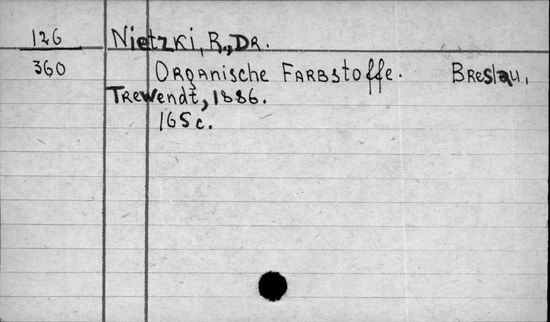 126 Nietzki, R., Dr.
360 Organische Farbstoffe. Breslau,
Trewendt, 1886.
165 c.